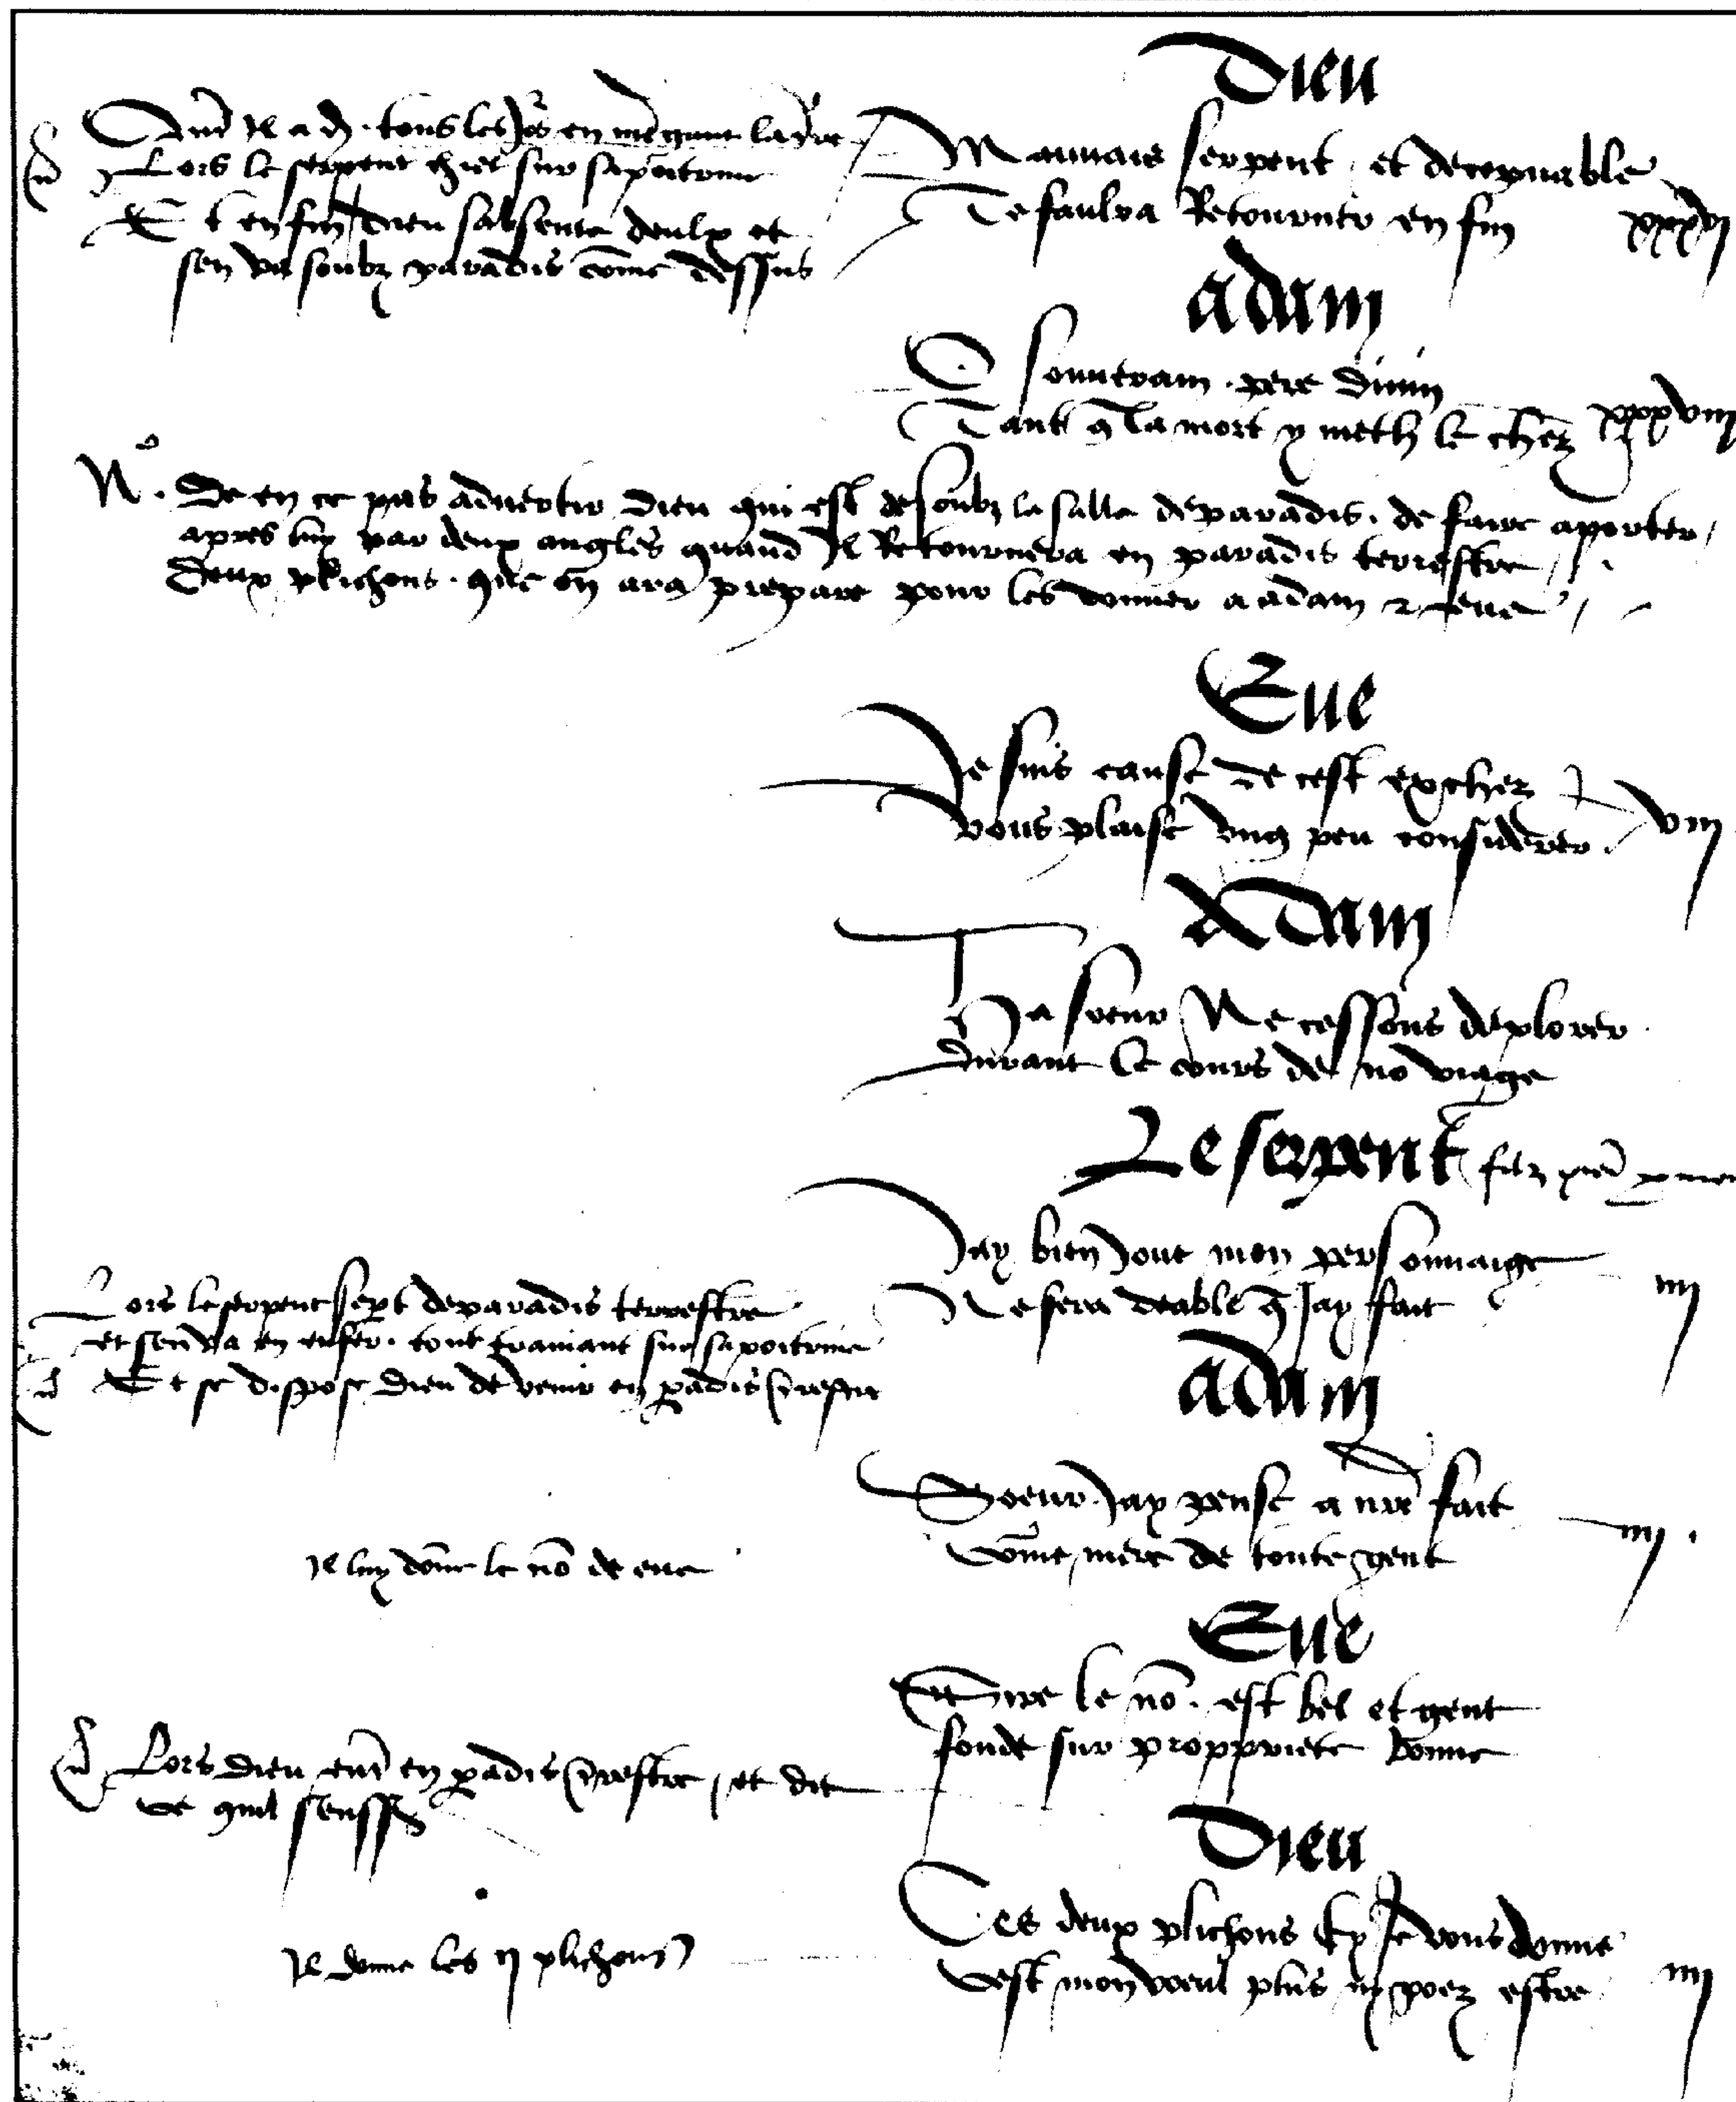 Dieu
Quant Il a dit tous les Jours en mengant la terre
Lors le serpent chiet sur sa poitrine
Et en fin dieu sabsente deulx et
sen va soubz paradis comme dessus
Mauuais serpent et decepuable
Te faulra Retourner en fin
xxxvj
adam
O souuerain pere diuin
Tant q la mort y meth le chez
xxxviij
No. De en ce pas aduertir Dieu qui est desoubz la salle de paradis. de faire aporter
apres luy par deux angles quand Il Retournera en paradis terrestre
Deux plichons. que on ara prepare pour les donner a adam et eue
Eue
Je suis cause de cest exchez
vous plaise ung peu considerer
viij
Adam
Ha soeur Ne cessons de plorer
Durant le cours de no viage
Le serpent
Jay bien Joue mon personnaige
Ne fera deable q Jay fait
iiij
Lors le serpent sept de paradis terrestre
et sen va en enfer. tout trainant sur sa poitrine
Et se dispose Dieu de venir en padis trestre
adam
Soeur Jay pense a nre fait
come mere de toute gent
iiij
Il luy done le no de eue
Eue
Sire le no. est bel et gent
fonde sur proppriete bonne
Lors Dieu en padis trestre, et dit
ce quil senssuit
Dieu
Ces deux plichons cy Je vous donne
Cest mon voeul plus ny poez estre
iiij
Il donne les ij plichons